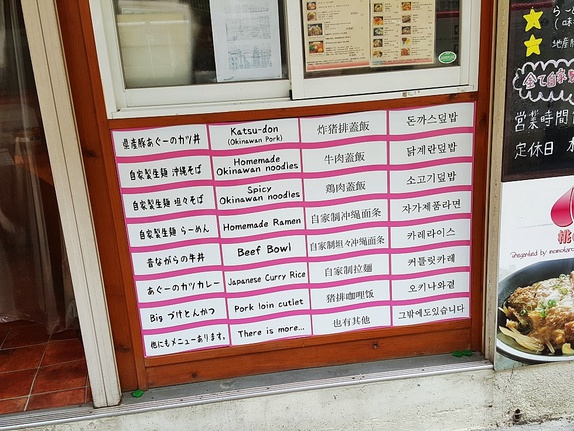 県産豚あぐーのカツ丼
Katsu-don
(Okinawan Pork)
炸猪排蓋飯
돈까스덮밥
自家製生麺 沖縄そば
Homemade
Okinawan noodles
牛肉蓋飯
닭계란덮밥
自家製生麺 坦々そば
Spicy
Okinawan noodles
鶏肉蓋飯
소고기덮밥
自家製生麺 らーめん
Homemade Ramen
自家制冲绳面条
자가제품라면
昔ながらの牛丼
Beef Bowl
自家制坦々冲绳面条
카레라이스
あぐーのカツカレー
Japanese Curry Rice
自家制拉麺
커틀릿카레
Big づけとんかつ
Pork loin cutlet
猪排咖哩饭
오키나와곁
他にもメニューあります。
There is more...
也有其他
그밖에도있습니다
全て自家製
営業時間
定休日